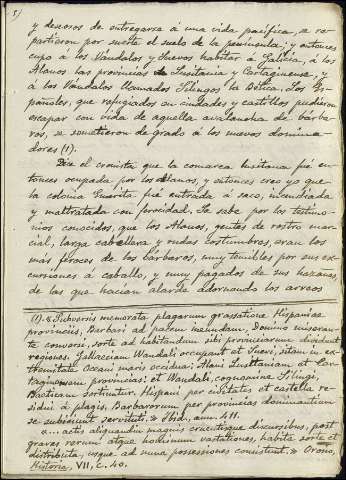 5)
y deseosos de entregarse á una vida pacífica, se re-
partieron por suerte el suelo de la península; y entonces
cupo á los Vándalos y Suevos habitar á Galicia, á los
Alanos las provincias de Lusitania y Cartaginense, y
á los Vándalos llamados Silingos la Bética. Los Es-
pañoles, que refugiados en ciudades y castillos pudieron
escapar con vida de aquella avalancha de bárba-
ros, se sometieron de grado á los nuevos domina-
dores (1).
Dice el cronista que la comarca lusitana fué en-
tonces ocupada por los Alanos, y entonces creo yo que
la colonia Emerita fué entrada á saco, incendiada
y maltratada con ferocidad. Se sabe por los testimo-
nios conocidos, que los Alanos, gentes de rostro mar-
cial, larga cabellera y rudas costumbres, eran los
más feroces de los bárbaros, muy temibles por sus ex-
cursiones á caballo, y muy pagados de sus hazañas
de las que hacian alarde adornando los arreos
(1). « Subversis memorata plagarum grassatione Hispaniae
provinciis, Barbari ad pacem ineundam, Domino miseran-
te conversi, sorte ad habitandum sibi provinciarum dividunt
regiones. Gallaeciam Wandali occupant et Suevi, sitam in ex-
tremitate Oceani maris occidua: Alani Lusitaniam et Car-
thaginensem provincias: et Wandali, cognomine Silingi,
Baeticam sortiuntur. Hispani per civitates et castella re-
sidui á plagis, Barbarorum per provincias dominantium
se subjiciunt servituti. » Ibid, anno 411.
« ... actis aliquandiu magnis cruentisque discursibus, post
graves rerum atque hominum vastationes, habita sorte et
distributa, usque ad nunc possessiones consistunt. » Orosio,
Historia, VII, c. 40.